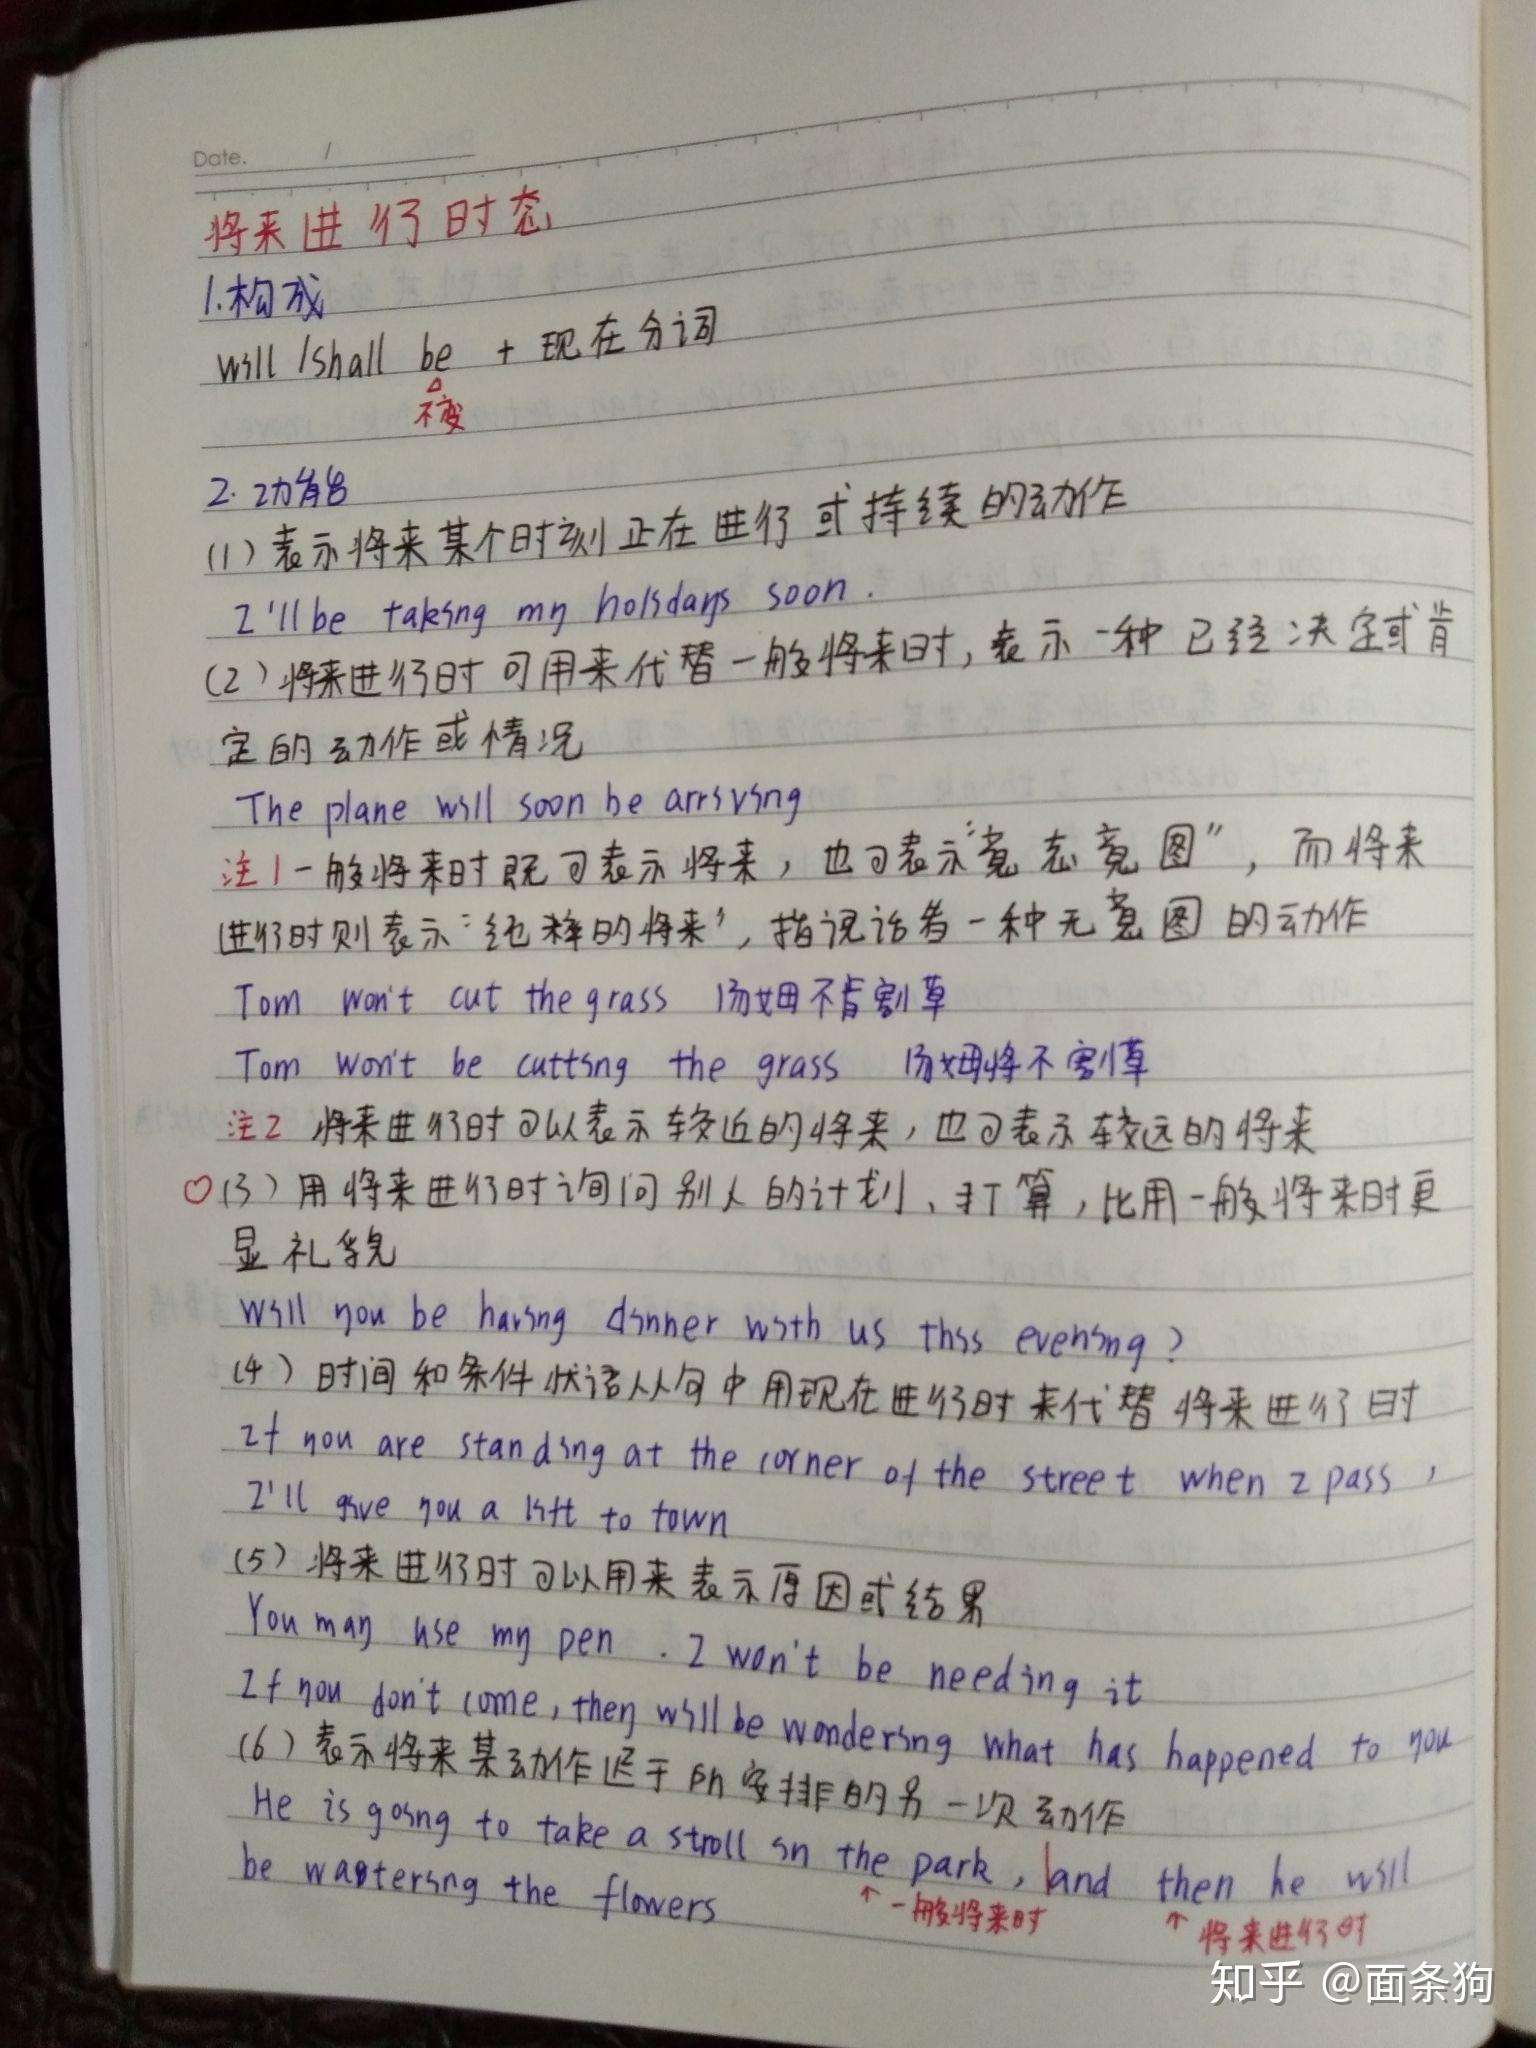 Date. /
将来进行时态
1.构成
will /shall be + 现在分词
不变
2.功能
(1)表示将来某个时刻正在进行或持续的动作
I'll be taking my holidays soon.
(2)将来进行时可用来代替一般将来时,表示一种已经决定或肯
定的动作或情况
The plane will soon be arriving
注1一般将来时既可表示将来,也可表示“意志意图”,而将来
进行时则表示“纯粹的将来”,指说话者一种无意图的动作
Tom won't cut the grass 汤姆不肯割草
Tom won't be cutting the grass 汤姆将不割草
注2 将来进行时可以表示较近的将来,也可表示较远的将来
♡(3)用将来进行时询问别人的计划、打算,比用一般将来时更
显礼貌
Will you be having dinner with us this evening?
(4)时间和条件状语从句中用现在进行时来代替将来进行时
If you are standing at the corner of the street when I pass,
I'll give you a lift to town
(5)将来进行时可以用来表示原因或结果
You may use my pen. I won't be needing it
If you don't come, they will be wondering what has happened to you
(6)表示将来某动作迟于所安排的另一次动作
He is going to take a stroll in the park, and then he will
be watering the flowers
↑一般将来时 ↑将来进行时
知乎 @面条狗